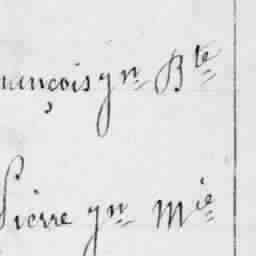 françois yn Bte
Pierre yn Mie